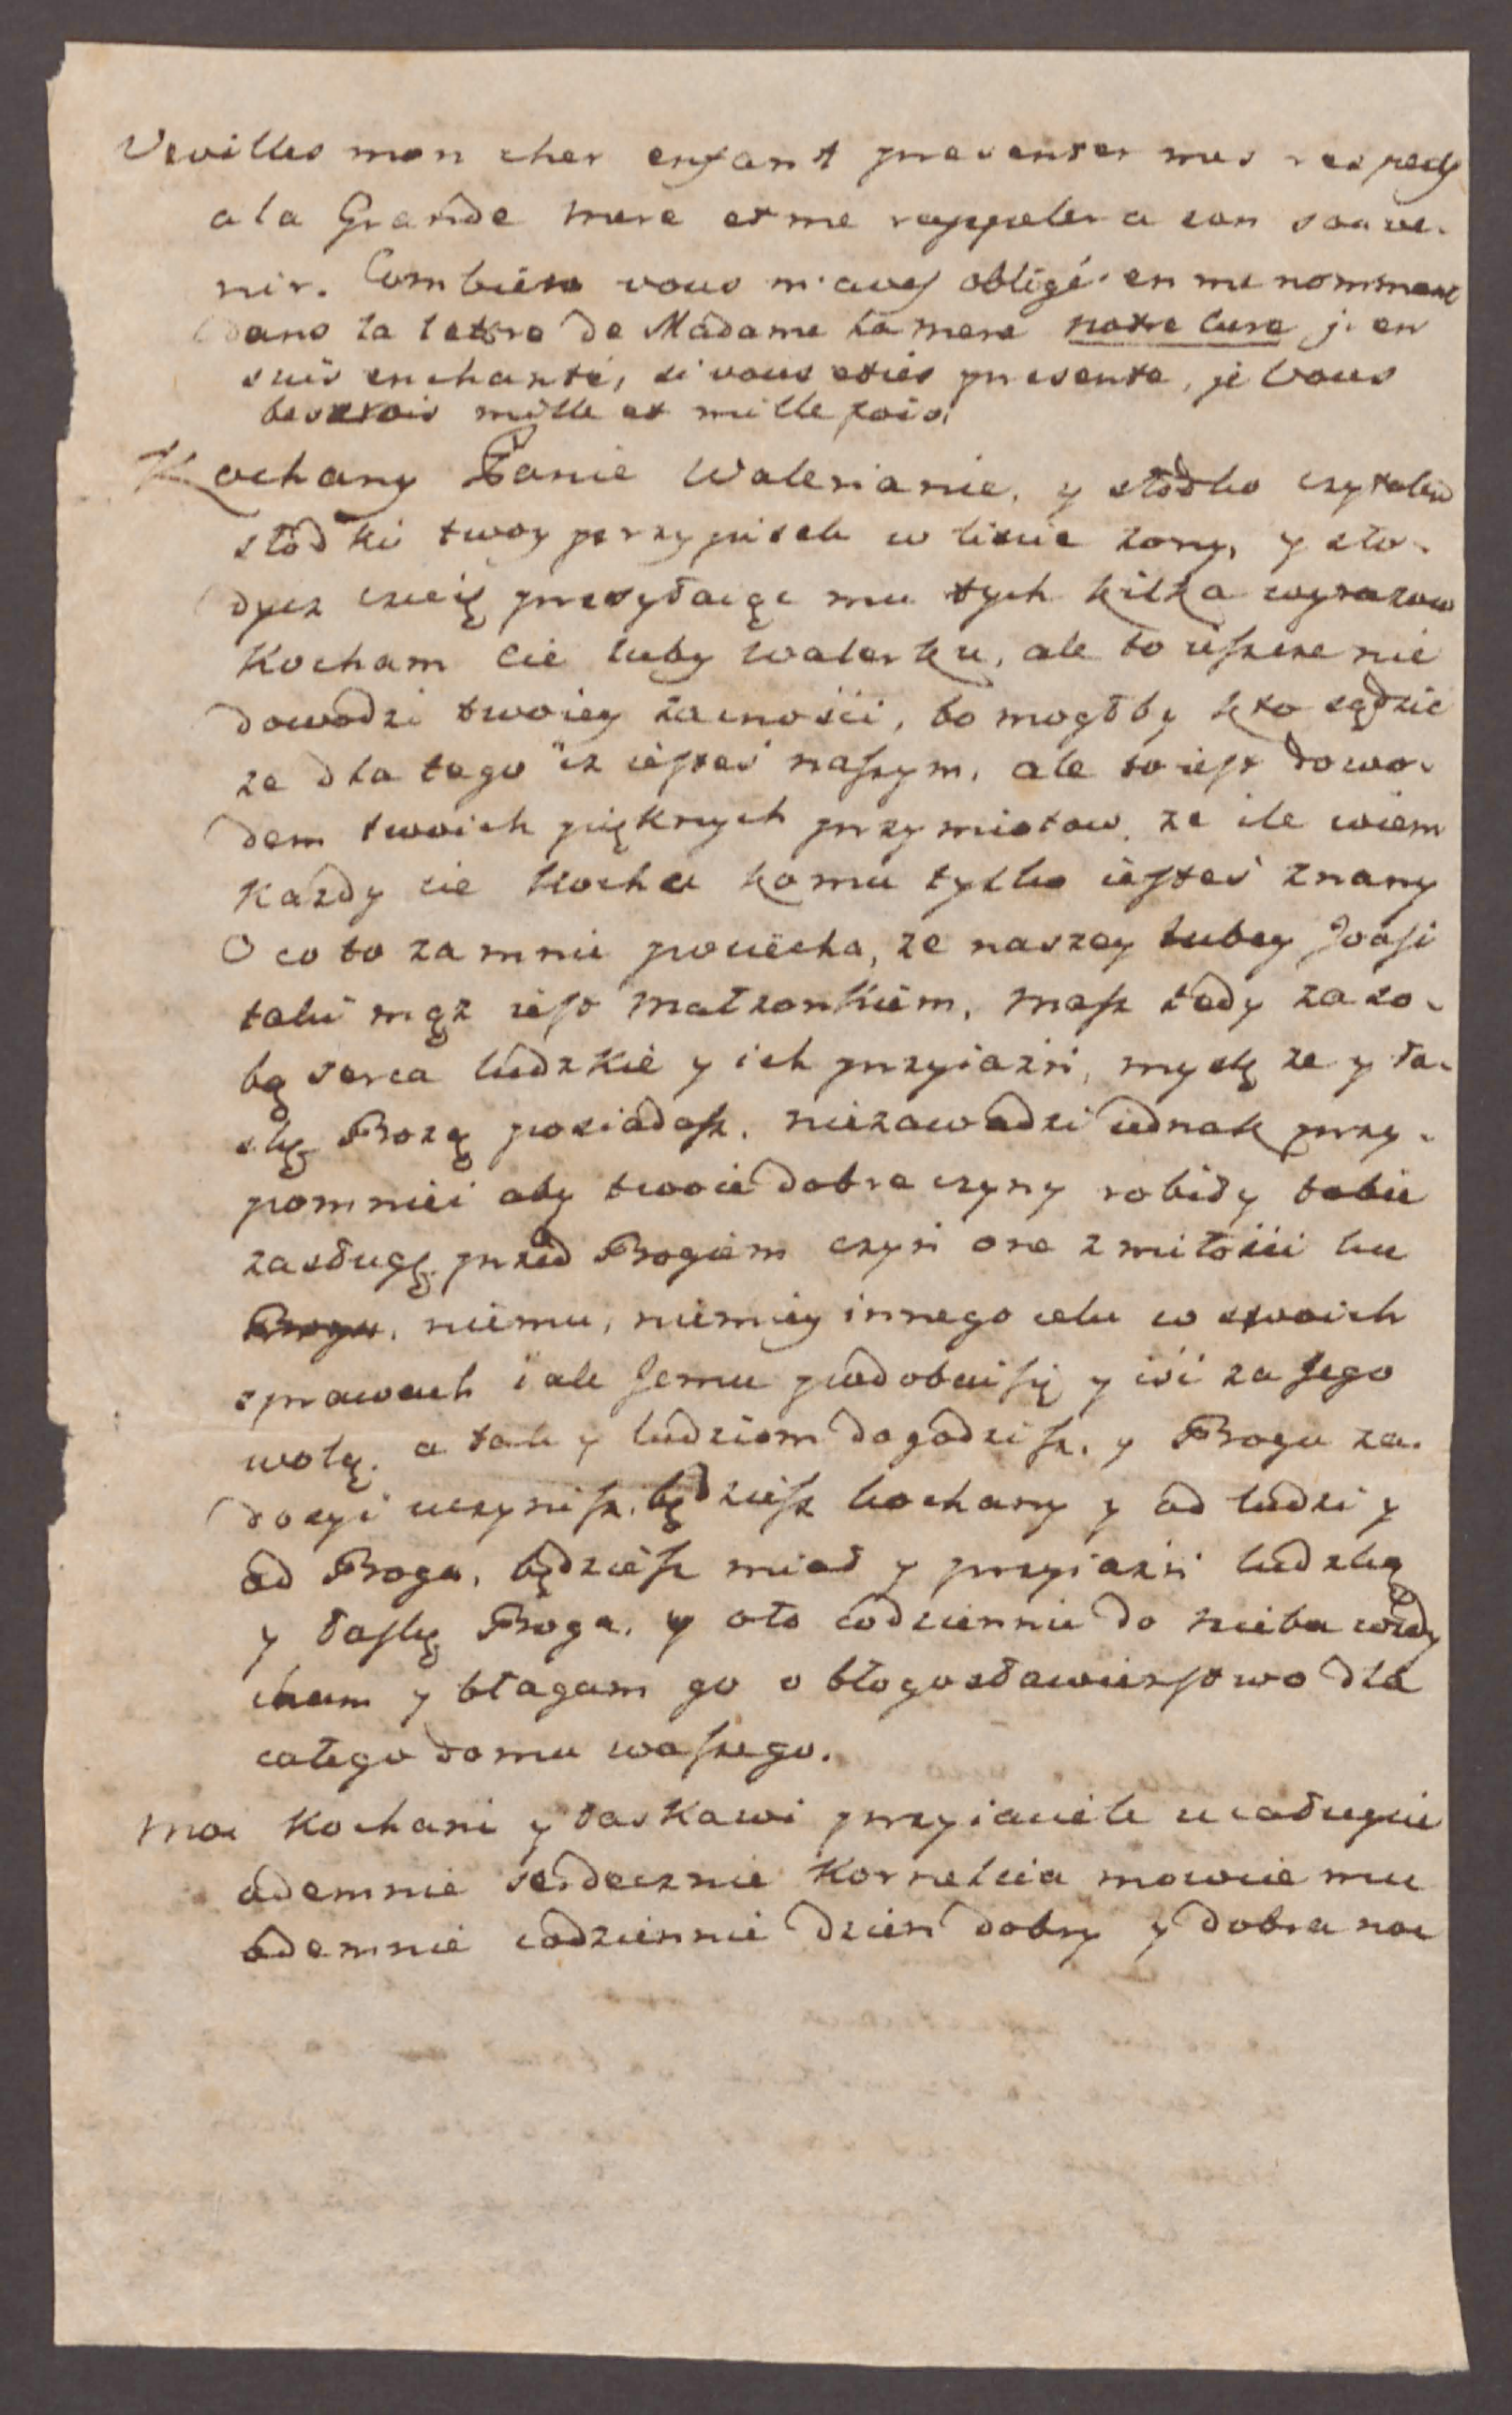 Veuilles mon cher enfant presenter mes respects
a la Grande mere et me rappeler a son souve-
nir. Combien vous m'avez obligé en me nommant
dans la lettre de Madame la mere notre cure j'en
suis enchanté, si vous etiés presente, je vous
beserois mille et mille fois.
Kochany Panie Walerianie, y słodko czytałem
słodki twoy przypisek w liscie zony, y sło-
dycz czuię przesyłaiąc mu tych kilka wyrazow
Kocham cie luby Walerku, ale to ieszcze nie
dowodzi twoiey zacności, bo mogłby kto sądzić
ze dla tego iz iesteś naszym, ale to iest dowo-
dem twoich pięknych przymiotow, ze ile wiem
Kazdy cie kocha komu tylko iesteś znany
O co to za mnie pociecha, ze naszey lubey Joasi
taki mąz iest małzonkiem, masz tedy za so-
bą serca ludzkie y ich przyiazń, myslę ze y ła-
skę Bozą posiadasz, niezawadzi iednak przy-
pomnieć aby twoie dobre czyny robiły tobie
zasługę przed Bogiem czyń one z miłości ku
Bogu, niemu, niemiey innego celu w swoich
sprawach iale Jemu podobać się y iść za Jego
wolą, a tak y ludziom dogodzisz, y Bogu za-
dosyć uczynisz, będziesz kochany y od ludzi y
od Boga, będziesz miał y przyiazń ludzką
y łaskę Boga, y oto codziennie do nieba wzdy
cham y błagam go o błogosławieństwo dla
całego domu waszego.
Moi Kochani y łaskawi przyiaciele ucałuycie
odemnie serdecznie Kornelcia mowcie mu
odemnie codziennie dzień dobry y dobra noc